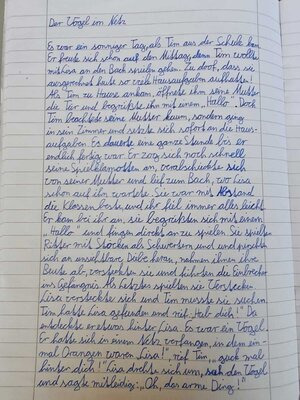 Der Vogel im Netz
Es war ein sonniger Tag, als Tim aus der Schule kam.
Er freute sich schon auf den Mittag, denn Tim wollte
mit Lisa an den Bach spielen gehen. Zu doof, dass sie
ausgerechnet heute so viele Hausaufgaben aufhatte!
Als Tim zu Hause ankam, öffnete ihm seine Mutter
die Tür und begrüßte ihn mit einem „Hallo". Doch
Tim beachtete seine Mutter kaum, sondern ging
in sein Zimmer und setzte sich sofort an die Haus-
aufgaben. Es dauerte eine ganze Stunde bis er
endlich fertig war. Er zog sich noch schnell
seine Spielklamotten an, verabschiedete sich
von seiner Mutter und lief zum Bach, wo Lisa
schon auf ihn wartete. Sie war mit Abstand
die Klassenbeste und ihr fiel immer alles leicht.
Er kam bei ihr an, sie begrüßten sich mit einem
„Hallo" und fingen direkt an zu spielen. Sie spielten
Ritter mit Stöcken als Schwertern und
an unsichtbare Diebe heran, nahmen ihnen ihre
Beute ab, und führten die Einbrecher
ins Gefängnis. Als Letztes spielten sie Verstecken.
Lisa versteckte sich und Tim musste sie suchen.
Tim hatte Lisa gefunden und rief „Hab dich!" Da
entdeckte er etwas hinter Lisa. Es war ein Vogel.
Er hatte sich in einem Netz verfangen, in dem ein-
mal Orangen waren. „Lisa!", rief Tim, „guck mal
hinter dich!" Lisa drehte sich um, sah den Vogel
und sagte mitleidig: „Oh, das arme Ding!"